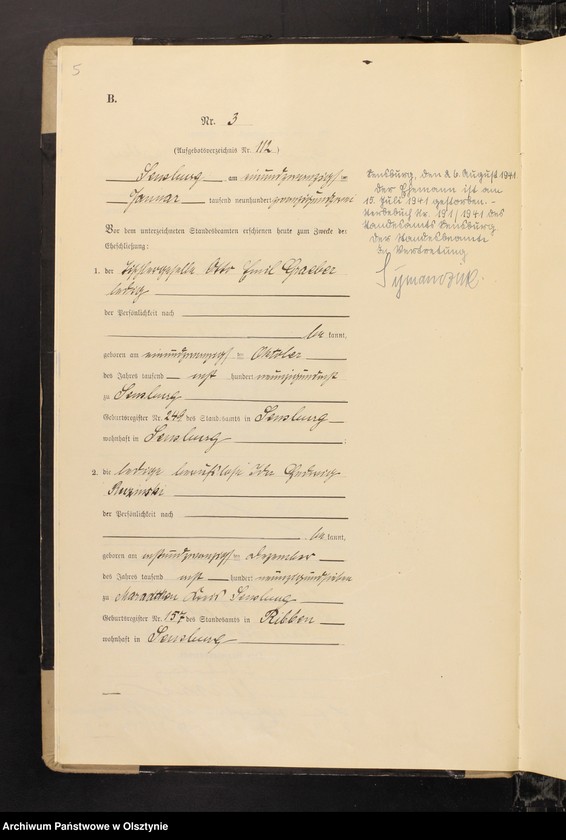 5
B.
Nr. 3
(Aufgebotsverzeichnis Nr. 112)
Sensburg am einundzwanzigsten
Januar tausend neunhundert zwanzigundzwei
Vor dem unterzeichneten Standesbeamten erschienen heute zum Zwecke der
Eheschließung:
1. der Tischlergeselle Otto Emil Graeber
ledig
der Persönlichkeit nach
be kannt,
geboren am einundzwanzigsten Oktober
des Jahres tausend acht hundert
zu Sensburg
Geburtsregister Nr. 249 des Standesamts in Sensburg
wohnhaft in Sensburg ;
2. die ledige berufslose Ida Hedwig
der Persönlichkeit nach
be kannt,
geboren am achtundzwanzigsten Dezember
des Jahres tausend acht hundert neunzigundsieben
zu Maradtken Kreis Sensburg
Geburtsregister Nr. 157 des Standesamts in Ribben
wohnhaft in Sensburg
Sensburg, den 26. August 1941
Der Ehemann ist am
15. Juli 1941 gestorben. -
Sterbebuch Nr. 191/1941 des
Standesamts Sensburg
Der Standesbeamte
In Vertretung
Symanczyk.
Archiwum Państwowe w Olsztynie